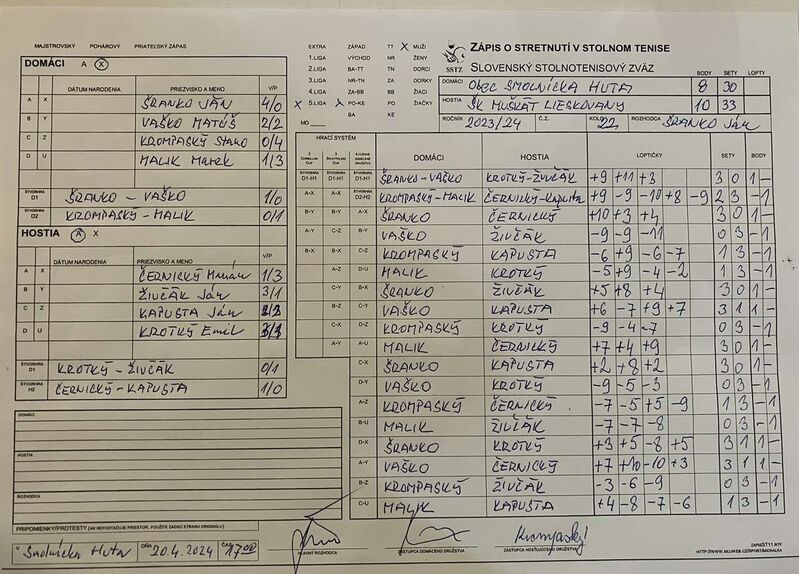 MAJSTROVSKÝ POHÁROVÝ PRIATEĽSKÝ ZÁPAS
DOMÁCI A X
DÁTUM NARODENIA PRIEZVISKO A MENO V/P
A X ŠRANKO JÁN 4/0
B Y VAŠKO MATÚŠ 2/2
C Z KROMPASKÝ Stano 0/4
D U MALIK Marek 1/3
ŠTVORHRA D1 ŠRANKO - VAŠKO 1/0
ŠTVORHRA D2 KROMPASKÝ - MALIK 0/1
HOSTIA A X
DÁTUM NARODENIA PRIEZVISKO A MENO V/P
A X ČERNICKÝ 1/3
B Y ŽIVČÁK Ján 3/1
C Z KAPUSTA Ján
D U KROTKÝ Emil
ŠTVORHRA KROTKÝ - ŽIVČÁK 0/1
ŠTVORHRA H2 ČERNICKÝ - KAPUSTA 1/0
DOMÁCI
HOSTIA
ROZHODCA
PRIPOMIENKY/PROTESTY (AK NEPOSTAČUJE PRIESTOR, POUŽITE ZADNÚ STRANU ORIGINÁLU)
V Smolnícka Huta DŇA 20.4.2024 ČAS 17,00
EXTRA ZÁPAD TT X MUŽI
1.LIGA VÝCHOD NR ŽENY
2.LIGA BA-TT TN DORCI
3.LIGA NR-TN ZA DORKY
4.LIGA ZA-BB BB ŽIACI
X 5.LIGA X PO-KE PO ŽIAČKY
MO BA KE
SSTZ
ZÁPIS O STRETNUTÍ V STOLNOM TENISE
SLOVENSKÝ STOLNOTENISOVÝ ZVÄZ
BODY SETY LOPTY
DOMÁCI OBEC SMOLNÍCKA HUTA 8 30
HOSTIA ŠK MUŠKÁT LIESKOVANY 10 33
ROČNÍK 2023/24 Č.Z. KOLO 22, ROZHODCA ŠRANKO Ján
HRACÍ SYSTÉM
DOMÁCI HOSTIA LOPTIČKY SETY BODY
ŠTVORHRA D1-H1 ŠTVORHRA D1-H1 ŠRANKO - VAŠKO KROTKÝ - ŽIVČÁK +9 +11 +3 3 0 1 -
A-X A-X ŠTVORHRA D2-H2 KROMPASKÝ - MALIK ČERNICKÝ - Kapusta +9 -9 -10 +8 -9 2 3 - 1
B-Y B-Y A-X ŠRANKO ČERNICKÝ +10 +3 +4 3 0 1 -
A-Y C-Z B-Y VAŠKO ŽIVČÁK -9 -9 -11 0 3 - 1
B-X B-X C-Z KROMPASKÝ KAPUSTA -6 +9 -6 -7 1 3 - 1
A-Z D-U MALIK KROTKÝ -5 +9 -4 -2 1 3 - 1
C-Y B-X ŠRANKO ŽIVČÁK +5 +8 +4 3 0 1 -
B-Z C-Y VAŠKO KAPUSTA +6 -7 +9 +7 3 1 1 -
C-X D-Z KROMPASKÝ KROTKÝ -9 -4 -7 0 3 - 1
A-Y A-U MALIK ČERNICKÝ +7 +4 +9 3 0 1 -
C-X ŠRANKO KAPUSTA +2 +8 +2 3 0 1 -
D-Y VAŠKO KROTKÝ -9 -5 -3 0 3 - 1
A-Z KROMPASKÝ ČERNICKÝ -7 -5 +5 -9 1 3 - 1
B-U MALIK ŽIVČÁK -7 -7 -8 0 3 - 1
D-X ŠRANKO KROTKÝ +3 +5 -8 +5 3 1 1 -
A-Y VAŠKO ČERNICKÝ +7 +10 -10 +3 3 1 1 -
B-Z KROMPASKÝ ŽIVČÁK -3 -6 -9 0 3 - 1
C-U MALIK KAPUSTA +4 -8 -7 -6 1 3 - 1
Krompaský
HLAVNÝ ROZHODCA ZÁSTUPCA DOMÁCEHO DRUŽSTVA ZÁSTUPCA HOSŤUJÚCEHO DRUŽSTVA
ZAPISST11.RTF
HTTP://WWW.MUJWEB.CZ/SPORT/MICHALKA